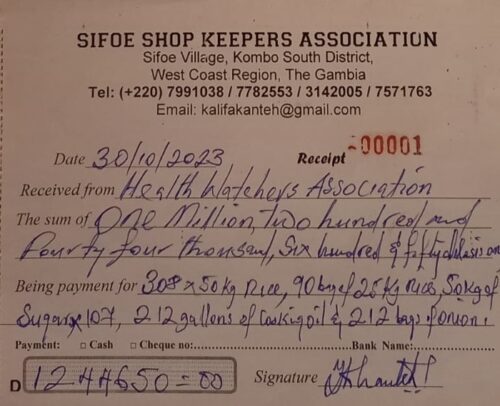 SIFOE SHOP KEEPERS ASSOCIATION
Sifoe Village, Kombo South District,
West Coast Region, The Gambia
Tel: (+220) 7991038 / 7782553 / 3142005 / 7571763
Email: kalifakanteh@gmail.com
Date 30/10/2023 Receipt -00001
Received from Health Watchers Association
The sum of One Million, two hundred and
Fourty four thousand, Six hundred & fifty dalasis on
Being payment for 308 x 50kg Rice, 90 bag of 25kg rice, 50kg of
Sugar x 107, 212 gallons of Cooking oil & 212 bags of onion.
Payment: □ Cash □ Cheque no: Bank Name:
D 1244650=00 Signature